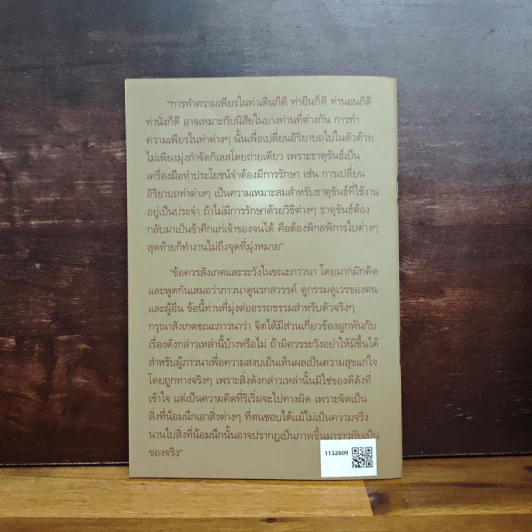 "การทำความเพียรในท่าเดินก็ดี ท่ายืนก็ดี ท่านอนก็ดี
ท่านั่งก็ดี อาจเหมาะกับนิสัยในบางท่านที่ต่างกัน การทำ
ความเพียรในท่าต่างๆ นั้นเพื่อเปลี่ยนอิริยาบถไปในตัวด้วย
ไม่เพียงมุ่งกำจัดกิเลสโดยถ่ายเดียว เพราะธาตุขันธ์เป็น
เครื่องมือทำประโยชน์จำต้องมีการรักษา เช่น การเปลี่ยน
อิริยาบถท่าต่างๆ เป็นความเหมาะสมสำหรับธาตุขันธ์ที่ใช้งาน
อยู่เป็นประจำ ถ้าไม่มีการรักษาด้วยวิธีต่างๆ ธาตุขันธ์ต้อง
กลับมาเป็นข้าศึกแก่เจ้าของจนได้ คือต้องพิกลพิการไปต่างๆ
สุดท้ายก็ทำงานไม่ถึงจุดที่มุ่งหมาย"
"ข้อควรสังเกตและระวังในขณะภาวนา โดยมากมักคิด
และพูดกันเสมอว่าภาวนาดูนรกสวรรค์ ดูกรรมดูเวรของตน
และผู้อื่น ข้อนี้ท่านที่มุ่งต่ออรรถธรรมสำหรับตัวจริงๆ
กรุณาสังเกตขณะภาวนาว่า จิตได้มีส่วนเกี่ยวข้องผูกพันกับ
เรื่องดังกล่าวเหล่านี้บ้างหรือไม่ ถ้ามีควรระวังอย่าให้มีขึ้นได้
สำหรับผู้ภาวนาเพื่อความสงบเย็นเห็นผลเป็นความสุขแก่ใจ
โดยถูกทางจริงๆ เพราะสิ่งดังกล่าวเหล่านั้นมิใช่ของดีดังที่
เข้าใจ แต่เป็นความคิดที่ริเริ่มจะไปทางผิด เพราะจิตเป็น
สิ่งที่น้อมนึกเอาสิ่งต่างๆ ที่ตนชอบได้แม้ไม่เป็นความจริง
นานไปสิ่งที่น้อมนึกนั้นอาจปรากฏเป็นภาพขึ้นมาราวกับเป็น
ของจริง"
1132809